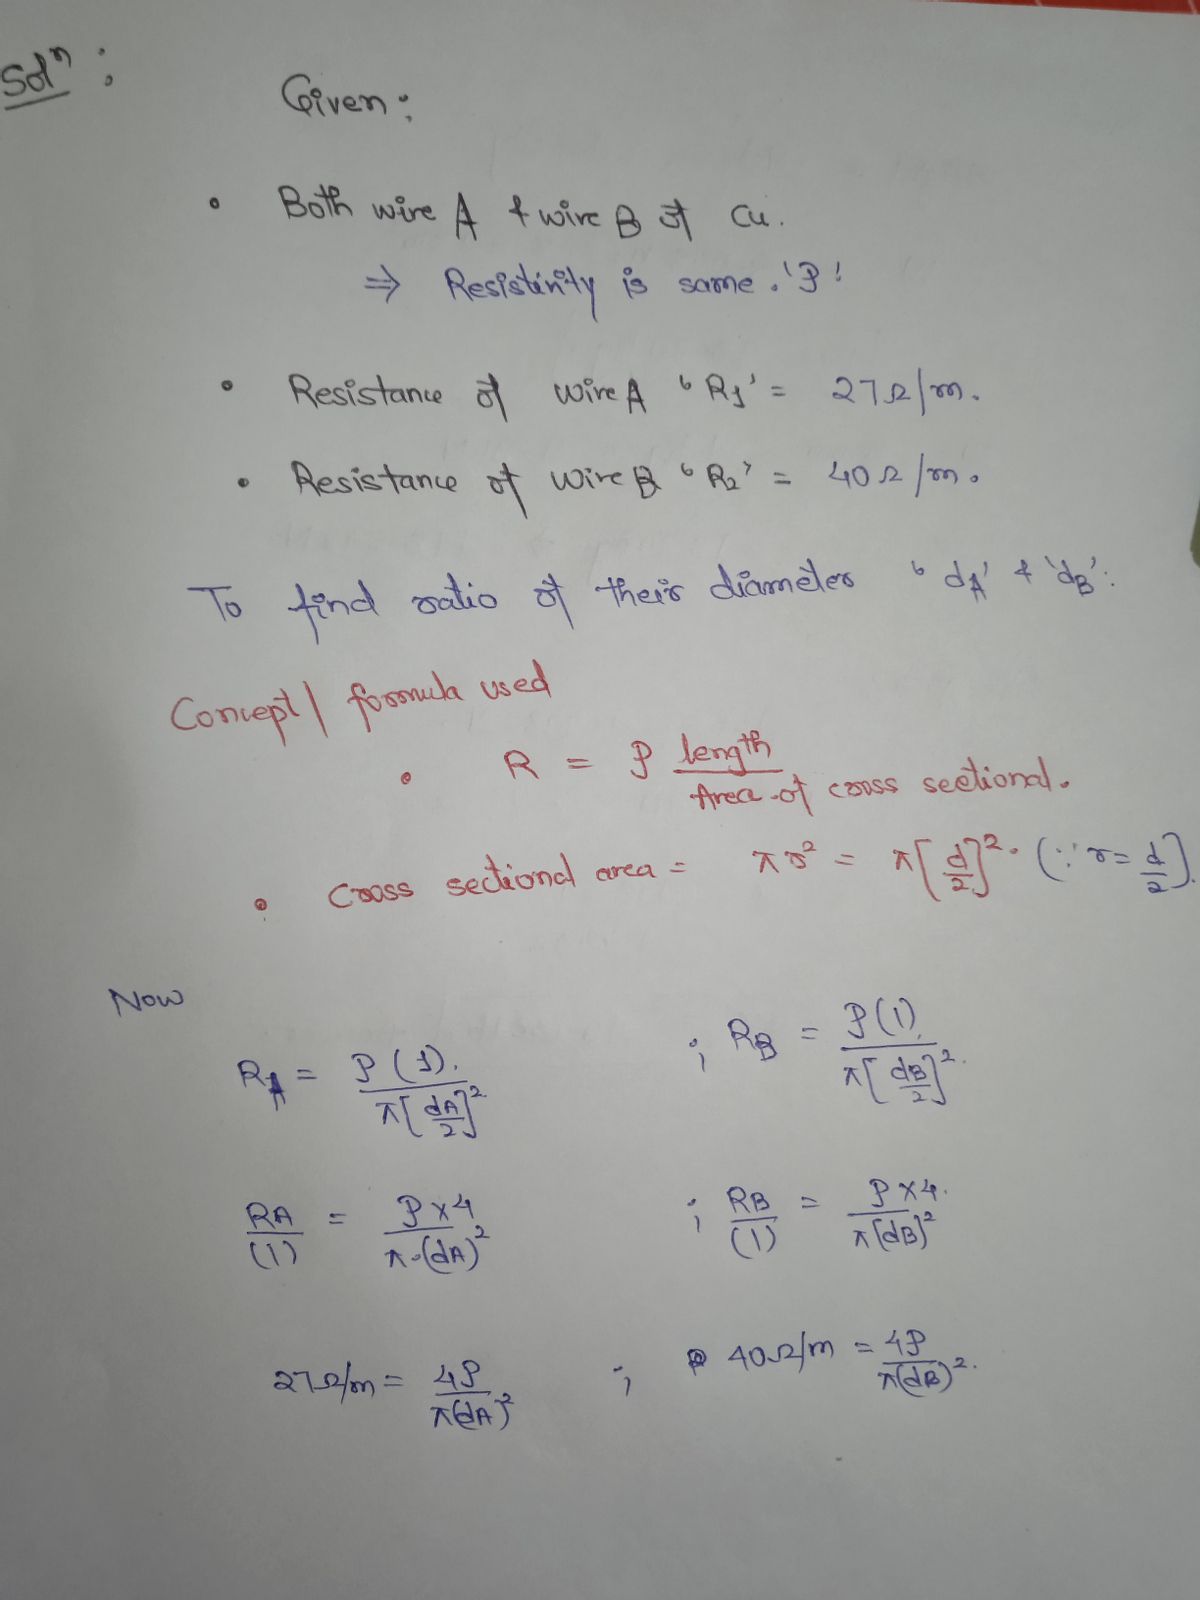 Solⁿ :
Given :
• Both wire A & wire B of Cu.
⇒ Resistivity is same. 'ρ'
• Resistance of wire A 'R₁' = 27Ω/m.
• Resistance of wire B 'R₂' = 40Ω/m.
To find ratio of their diameter 'dA' & 'dB' :
Concept / formula used
• R = ρ length / Area of cross sectional.
• Cross sectional area = πr² = π[d/2]². (∵ r = d/2).
Now
RA = ρ(1). / π[dA/2]². ; RB = ρ(1). / π[dB/2]².
RA/(1) = ρ×4 / π.(dA)² ; RB/(1) = ρ×4. / π(dB)²
27Ω/m = 4ρ / π(dA)² ; 40Ω/m = 4ρ / π(dB)².